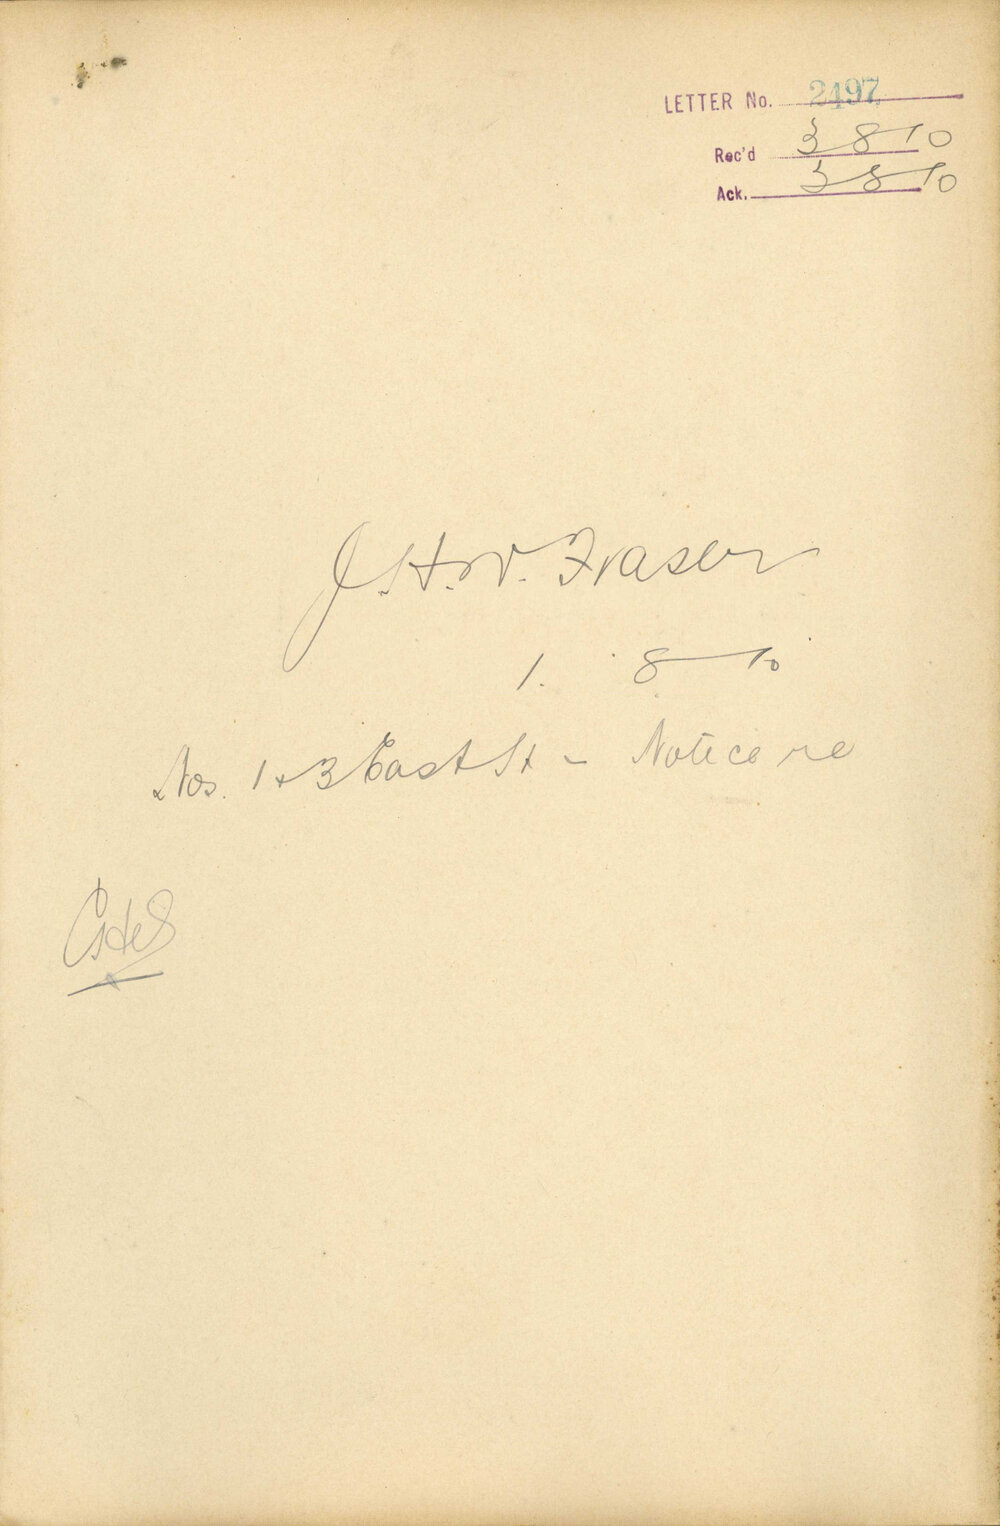 LETTER No. 2497
Rec'd 3 8 10
Ack. 3 8 10
J. H. W. Fraser
1. 8 10
Nos. 1 + 3 East St - Notice re